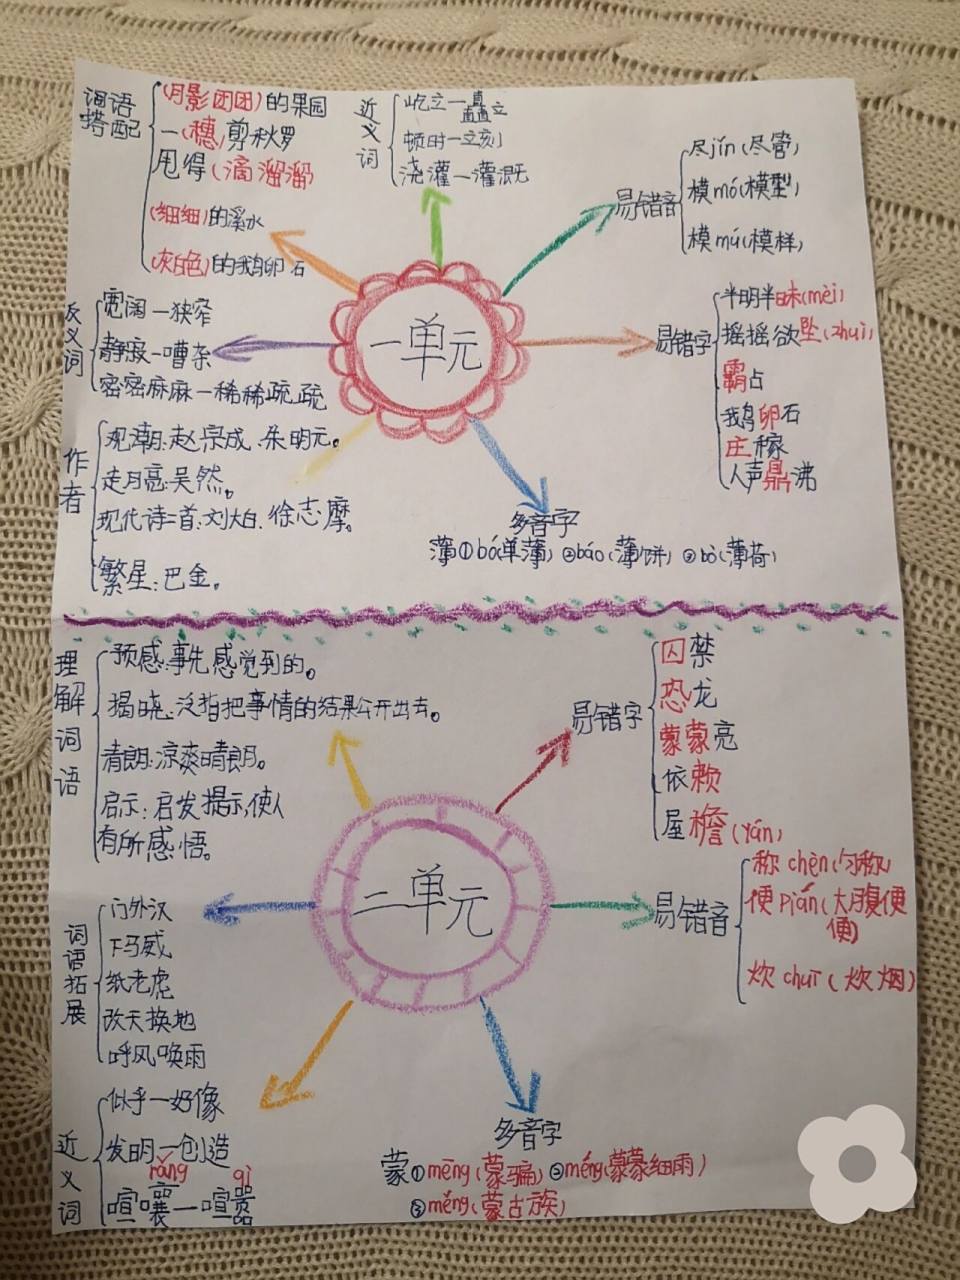 词语搭配
(月影团团)的果园
一(穗)剪秋罗
甩得(滴溜溜)
(细细)的溪水
(灰白色)的鹅卵石
近义词
屹立一矗立
顿时一立刻
浇灌一灌溉
易错音
尽jǐn(尽管)
模mó(模型)
模mú(模样)
反义词
宽阔一狭窄
静寂一嘈杂
密密麻麻一稀稀疏疏
一单元
易错字
半明半昧(mèi)
摇摇欲坠(zhuì)
霸占
鹅卵石
庄稼
人声鼎沸
作者
观潮:赵宗成、朱明元。
走月亮:吴然。
现代诗二首:刘大白、徐志摩。
繁星:巴金。
多音字
薄①bó(单薄) ②báo(薄饼) ③bò(薄荷)
理解词语
预感:事先感觉到的。
揭晓:泛指把事情的结果公开出去。
清朗:凉爽晴朗。
启示:启发提示,使人
有所感悟。
易错字
囚禁
恐龙
蒙蒙亮
依赖
屋檐(yán)
二单元
词语拓展
门外汉
下马威
纸老虎
改天换地
呼风唤雨
易错音
称 chèn(匀称)
便 pián(大腹便
便)
炊 chuī(炊烟)
近义词
似乎一好像
发明一创造
rǎng
喧嚷一喧嚣
多音字
蒙①mēng(蒙骗) ②méng(蒙蒙细雨)
③měng(蒙古族)